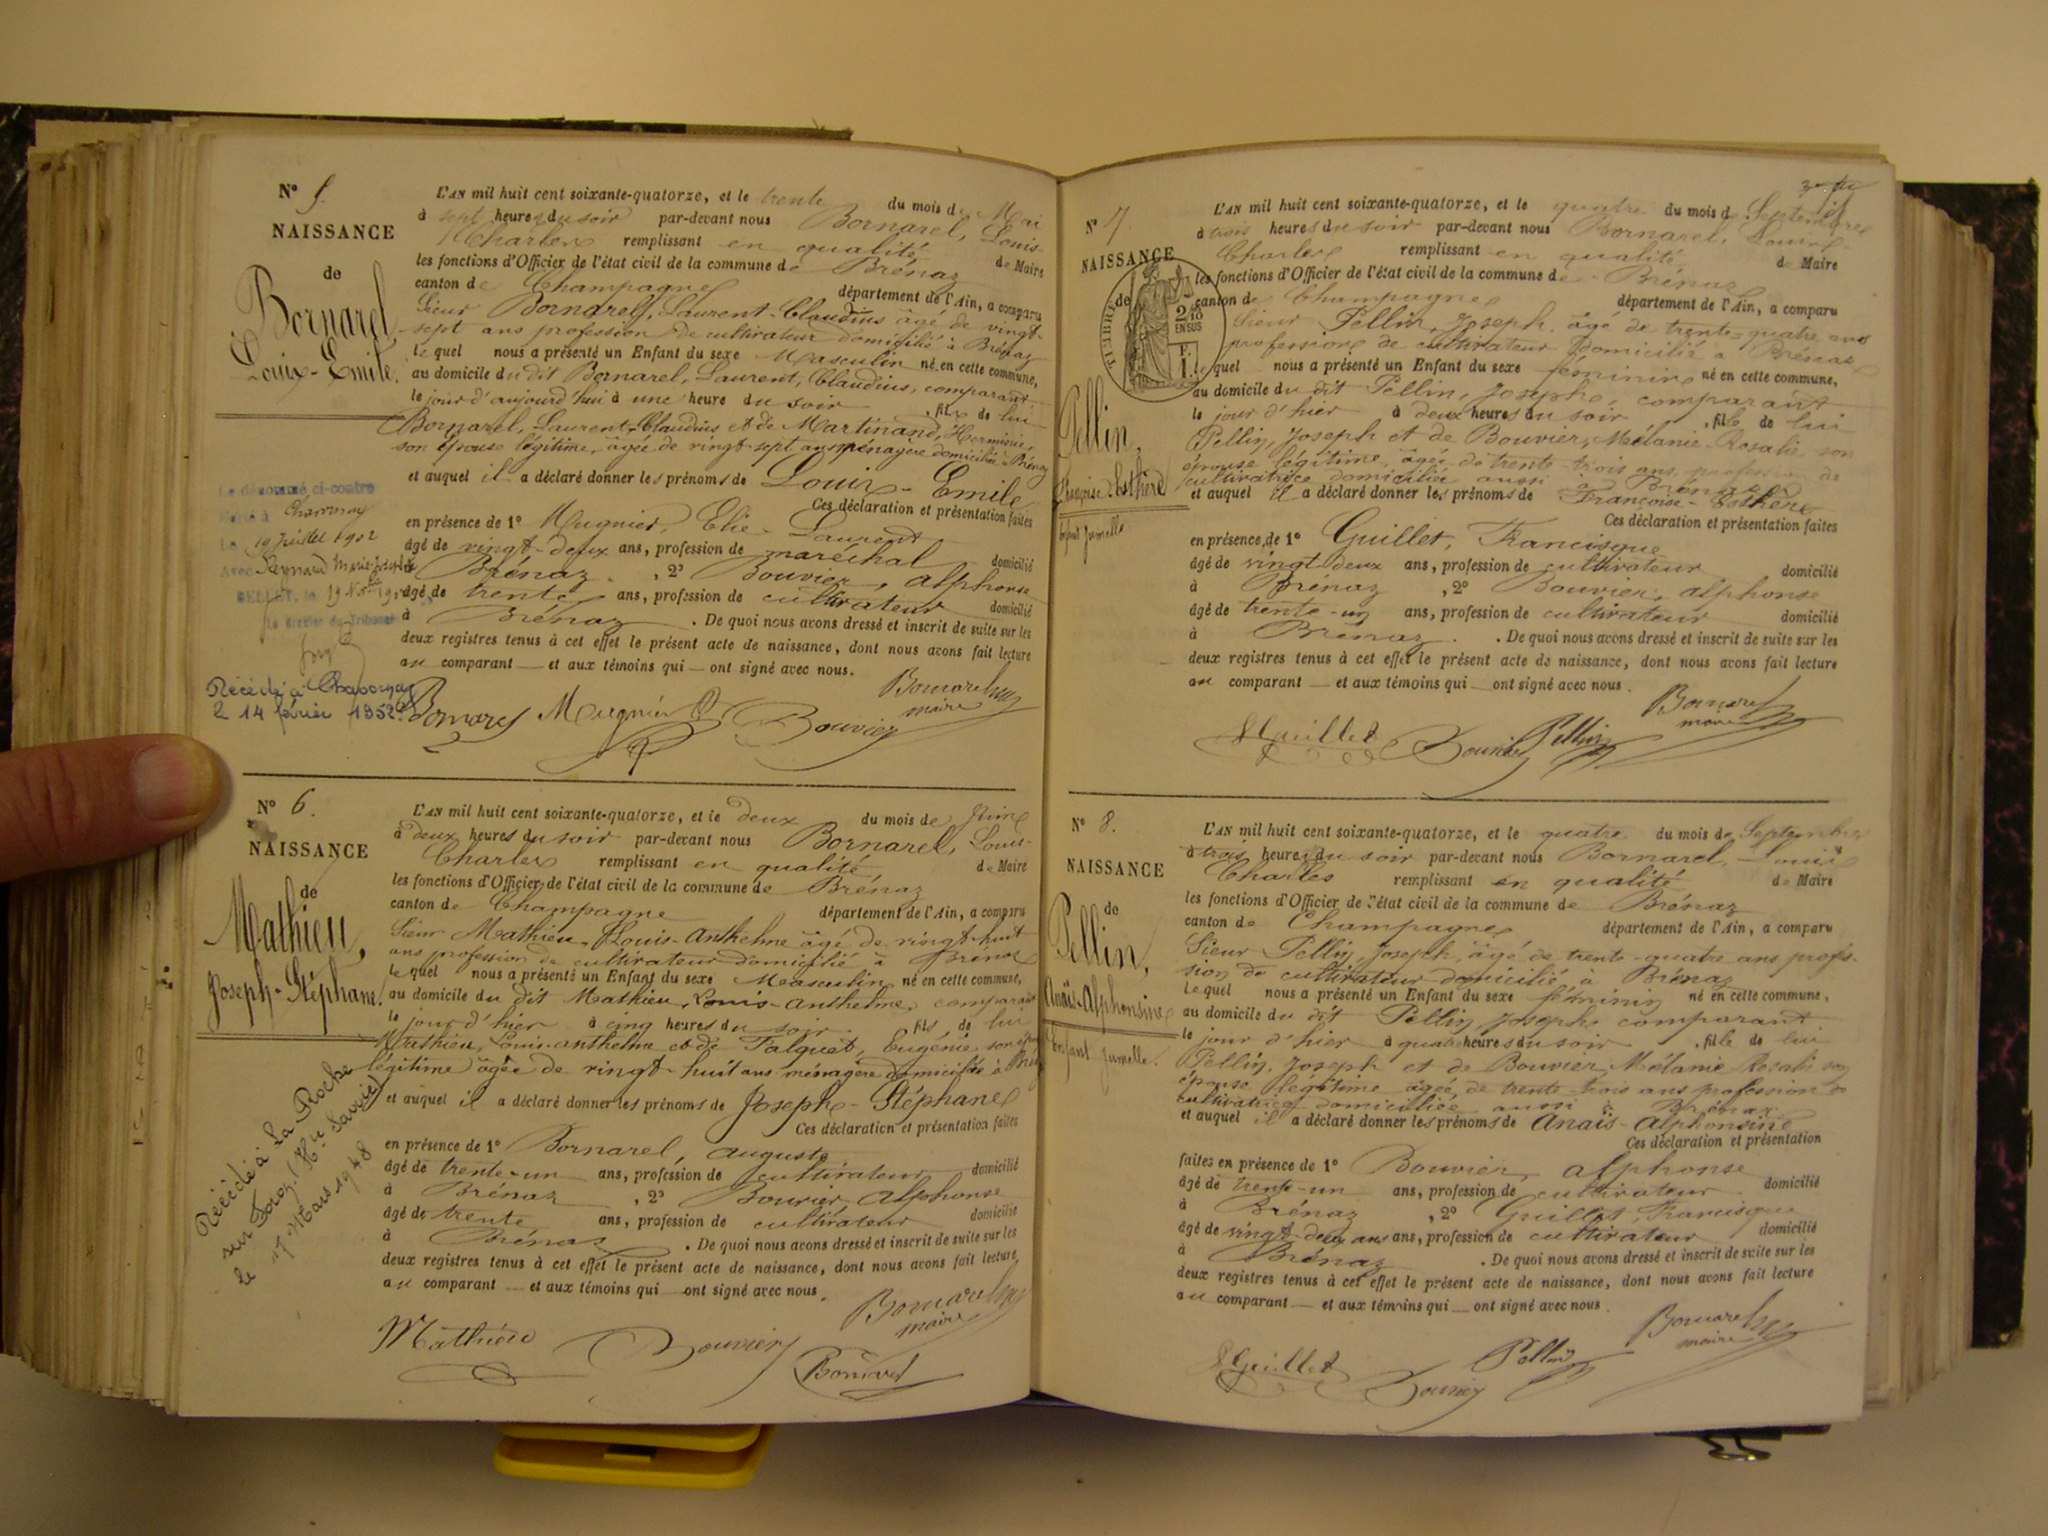 N° 5.
NAISSANCE
de
Bornarel
Louis-Emile.
L'AN mil huit cent soixante-quatorze, et le trente du mois de Mai
à sept heures du soir par-devant nous Bornarel, Louis-
Charles remplissant en qualité de Maire
les fonctions d'Officier de l'état civil de la commune de Brénaz
canton de Champagne département de l'Ain, a comparu
Sieur Bornarel, Laurent-Claudius âgé de vingt-
sept ans profession de cultivateur domicilié à Brénaz
lequel nous a présenté un Enfant du sexe Masculin né en cette commune,
au domicile du dit Bornarel, Laurent, Claudius, comparant
le jour d'aujourd'hui à une heure du soir, fils de lui
Bornarel, Laurent-Claudius et de Martinand, Herminie,
son épouse légitime, âgée de vingt-sept ans ménagère domiciliée à Brénaz
et auquel il a déclaré donner les prénoms de Louis-Emile
Ces déclaration et présentation faites
en présence de 1° Mugnier, Elie-Laurent
âgé de vingt-deux ans, profession de maréchal domicilié
à Brénaz, 2° Bouvier, Alphonse
âgé de trente ans, profession de cultivateur domicilié
à Brénaz. De quoi nous avons dressé et inscrit de suite sur les
deux registres tenus à cet effet le présent acte de naissance, dont nous avons fait lecture
au comparant — et aux témoins qui — ont signé avec nous.
Bornarel Mugnier Bouvier Bornarel
maire
Le dénommé ci-contre
Marié à Chavornay
Le 19 Juillet 1902
Avec Reynaud Marie-Josephte
BELLEY, le 19
Le Greffier du Tribunal
Décédé à Chavornay
le 14 février 1952
N° 6.
NAISSANCE
de
Mathieu,
Joseph-Stéphane.
L'AN mil huit cent soixante-quatorze, et le deux du mois de Juin
à deux heures du soir par-devant nous Bornarel, Louis-
Charles remplissant en qualité de Maire
les fonctions d'Officier de l'état civil de la commune de Brénaz
canton de Champagne département de l'Ain, a comparu
Sieur Mathieu, Louis-Anthelme âgé de vingt-huit
ans profession de cultivateur domicilié à Brénaz
lequel nous a présenté un Enfant du sexe Masculin né en cette commune,
au domicile du dit Mathieu, Louis-Anthelme, comparant
le jour d'hier à cinq heures du soir fils de lui
Mathieu, Louis-Anthelme et de Falquet, Eugénie, son épouse
légitime âgée de vingt-huit ans ménagère domiciliée à Brénaz
et auquel il a déclaré donner les prénoms de Joseph-Stéphane
Ces déclaration et présentation faites
en présence de 1° Bornarel, Auguste
âgé de trente-un ans, profession de cultivateur domicilié
à Brénaz, 2° Bouvier, Alphonse
âgé de trente ans, profession de cultivateur domicilié
à Brénaz. De quoi nous avons dressé et inscrit de suite sur les
deux registres tenus à cet effet le présent acte de naissance, dont nous avons fait lecture
au comparant — et aux témoins qui — ont signé avec nous.
Mathieu Bouvier Bornarel
maire
Décédé à La Roche
sur Foron (Hte Savoie)
le 17 Mars 1948
N° 7.
NAISSANCE
de
Pellin,
Françoise-Esthère
enfant jumelle
TIMBRE
2/10
EN SUS
F.
1
L'AN mil huit cent soixante-quatorze, et le quatre du mois de Septembre
à trois heures du soir par-devant nous Bornarel, Louis-
Charles remplissant en qualité de Maire
les fonctions d'Officier de l'état civil de la commune de Brénaz
canton de Champagne département de l'Ain, a comparu
Sieur Pellin, Joseph, âgé de trente-quatre ans
profession de cultivateur domicilié à Brénaz
lequel nous a présenté un Enfant du sexe féminin né en cette commune,
au domicile du dit Pellin, Joseph, comparant
le jour d'hier à deux heures du soir, fille de lui
Pellin, Joseph et de Bouvier, Mélanie-Rosalie, son
épouse légitime, âgée de trente-trois ans, profession de
cultivatrice domiciliée aussi à Brénaz
et auquel il a déclaré donner les prénoms de Françoise-Esthère
Ces déclaration et présentation faites
en présence de 1° Guillet, Francisque
âgé de vingt deux ans, profession de cultivateur domicilié
à Brénaz, 2° Bouvier, Alphonse
âgé de trente-un ans, profession de cultivateur domicilié
à Brénaz. De quoi nous avons dressé et inscrit de suite sur les
deux registres tenus à cet effet le présent acte de naissance, dont nous avons fait lecture
au comparant — et aux témoins qui — ont signé avec nous.
Guillet Bouvier Pellin Bornarel
maire
N° 8.
NAISSANCE
de
Pellin,
Anaïs-Alphonsine
enfant jumelle.
L'AN mil huit cent soixante-quatorze, et le quatre du mois de Septembre
à trois heures du soir par-devant nous Bornarel, Louis
Charles remplissant en qualité de Maire
les fonctions d'Officier de l'état civil de la commune de Brénaz
canton de Champagne département de l'Ain, a comparu
Sieur Pellin, Joseph, âgé de trente-quatre ans profes-
sion de cultivateur domicilié à Brénaz
lequel nous a présenté un Enfant du sexe féminin né en cette commune,
au domicile du dit Pellin, Joseph, comparant
le jour d'hier à quatre heures du soir, fille de lui
Pellin, Joseph et de Bouvier, Mélanie Rosalie son
épouse légitime âgée de trente-trois ans profession de
cultivatrice domiciliée aussi à Brénaz
et auquel il a déclaré donner les prénoms de Anaïs-Alphonsine
Ces déclaration et présentation
faites en présence de 1° Bouvier, Alphonse
âgé de trente-un ans, profession de cultivateur domicilié
à Brénaz, 2° Guillet, Francisque
âgé de vingt-deux ans ans, profession de cultivateur domicilié
à Brénaz. De quoi nous avons dressé et inscrit de suite sur les
deux registres tenus à cet effet le présent acte de naissance, dont nous avons fait lecture
au comparant — et aux témoins qui — ont signé avec nous.
Guillet Bouvier Pellin Bornarel
maire